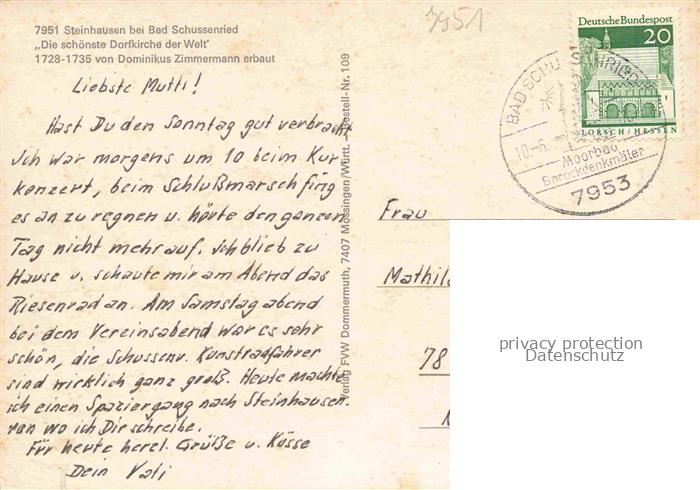 7951
7951 Steinhausen bei Bad Schussenried
„Die schönste Dorfkirche der Welt'
1728-1735 von Dominikus Zimmermann erbaut
Liebste Mutti!
Hast Du den Sonntag gut verbracht
Ich war morgens um 10 beim Kur
konzert, beim Schlußmarsch fing
es an zu regnen u. hörte den ganzen
Tag nicht mehr auf. Ich blieb zu
Hause u. schaute mir am Abend das
Riesenrad an. Am Samstag abend
bei dem Vereinsabend war es sehr
schön, die Schussenr. Kunstradfahrer
sind wirklich ganz groß. Heute machte
ich einen Spaziergang nach Steinhausen.
von wo ich Dir schreibe.
Für heute herzl. Grüße u. Küsse
Dein Vati
Verlag FVW Dommermuth, 7407 Mössingen/Württ. Bestell-Nr. 109
Deutsche Bundespost
20
LORSCH/HESSEN
BAD SCHUSSENRIED
10.-6.
Moorbad
Barockdenkmäler
7953
Frau
Mathil
78
privacy protection
Datenschutz